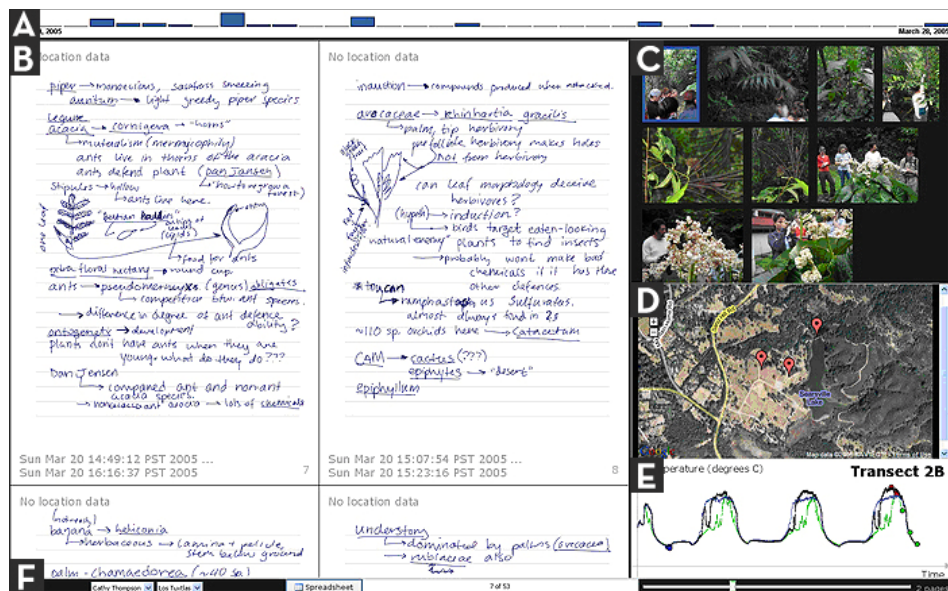 A
2005
March 28, 2005
B
location data
piper → monoecious, sassafras smelling
auritum → light greedy piper species
legume
acacia → cornigera → "horns"
mutualism (mermycophily)
ants live in thorns of the acacia
ants defend plant (Dan Jansen)
"how to regrow a forest"
Stipules → hollow
ants live here.
one leaf
"Beltian bodies"
food for ants
extra floral nectary → round cup
ants → pseudomermyx (genus) obligates
competition btw. ant species.
→ difference in degree of ant defence ability?
ontogeny → development
plants don't have ants when they are
young. what do they do???
Dan Jensen
compared ant and non-ant
acacia species.
acacia → lots of chemicals
Sun Mar 20 14:49:12 PST 2005 ...
Sun Mar 20 16:16:37 PST 2005
7
No location data
induction → compounds produced when attacked.
arecaceae → rhinhartia gracilis
palm, tip herbivory
herbivory makes holes
not from herbivory
can leaf morphology deceive
herbivores?
induction?
birds target eaten-looking
"natural enemy" plants to find insects
probably wont make bad
chemicals if it has these
other defences.
toucan
ramphastos sulfuratus.
almost always found in 2s
~110 sp. orchids here → catacectum
CAM → cactus (???)
epiphytes → "desert"
epiphyllum
Sun Mar 20 15:07:54 PST 2005 ...
Sun Mar 20 15:23:16 PST 2005
8
No location data
banana → heliconia
herbaceous → lamina + peticule
stem below ground
palm - chamaedorea (~40 sp.)
No location data
understory
dominated by palms (arecacea)
rubiaceae also
C
D
Searsville Lake
E
perature (degrees C)
Transect 2B
Time
F
Cathy Thompson
Los Tuxtlas
Spreadsheet
7 of 53
2 pages